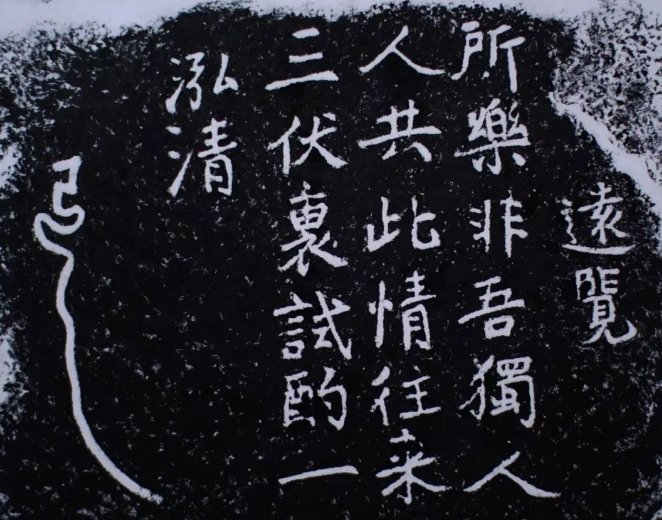 遠覽
所樂非吾獨人
人共此情往来
三伏裏試酌一
泓清